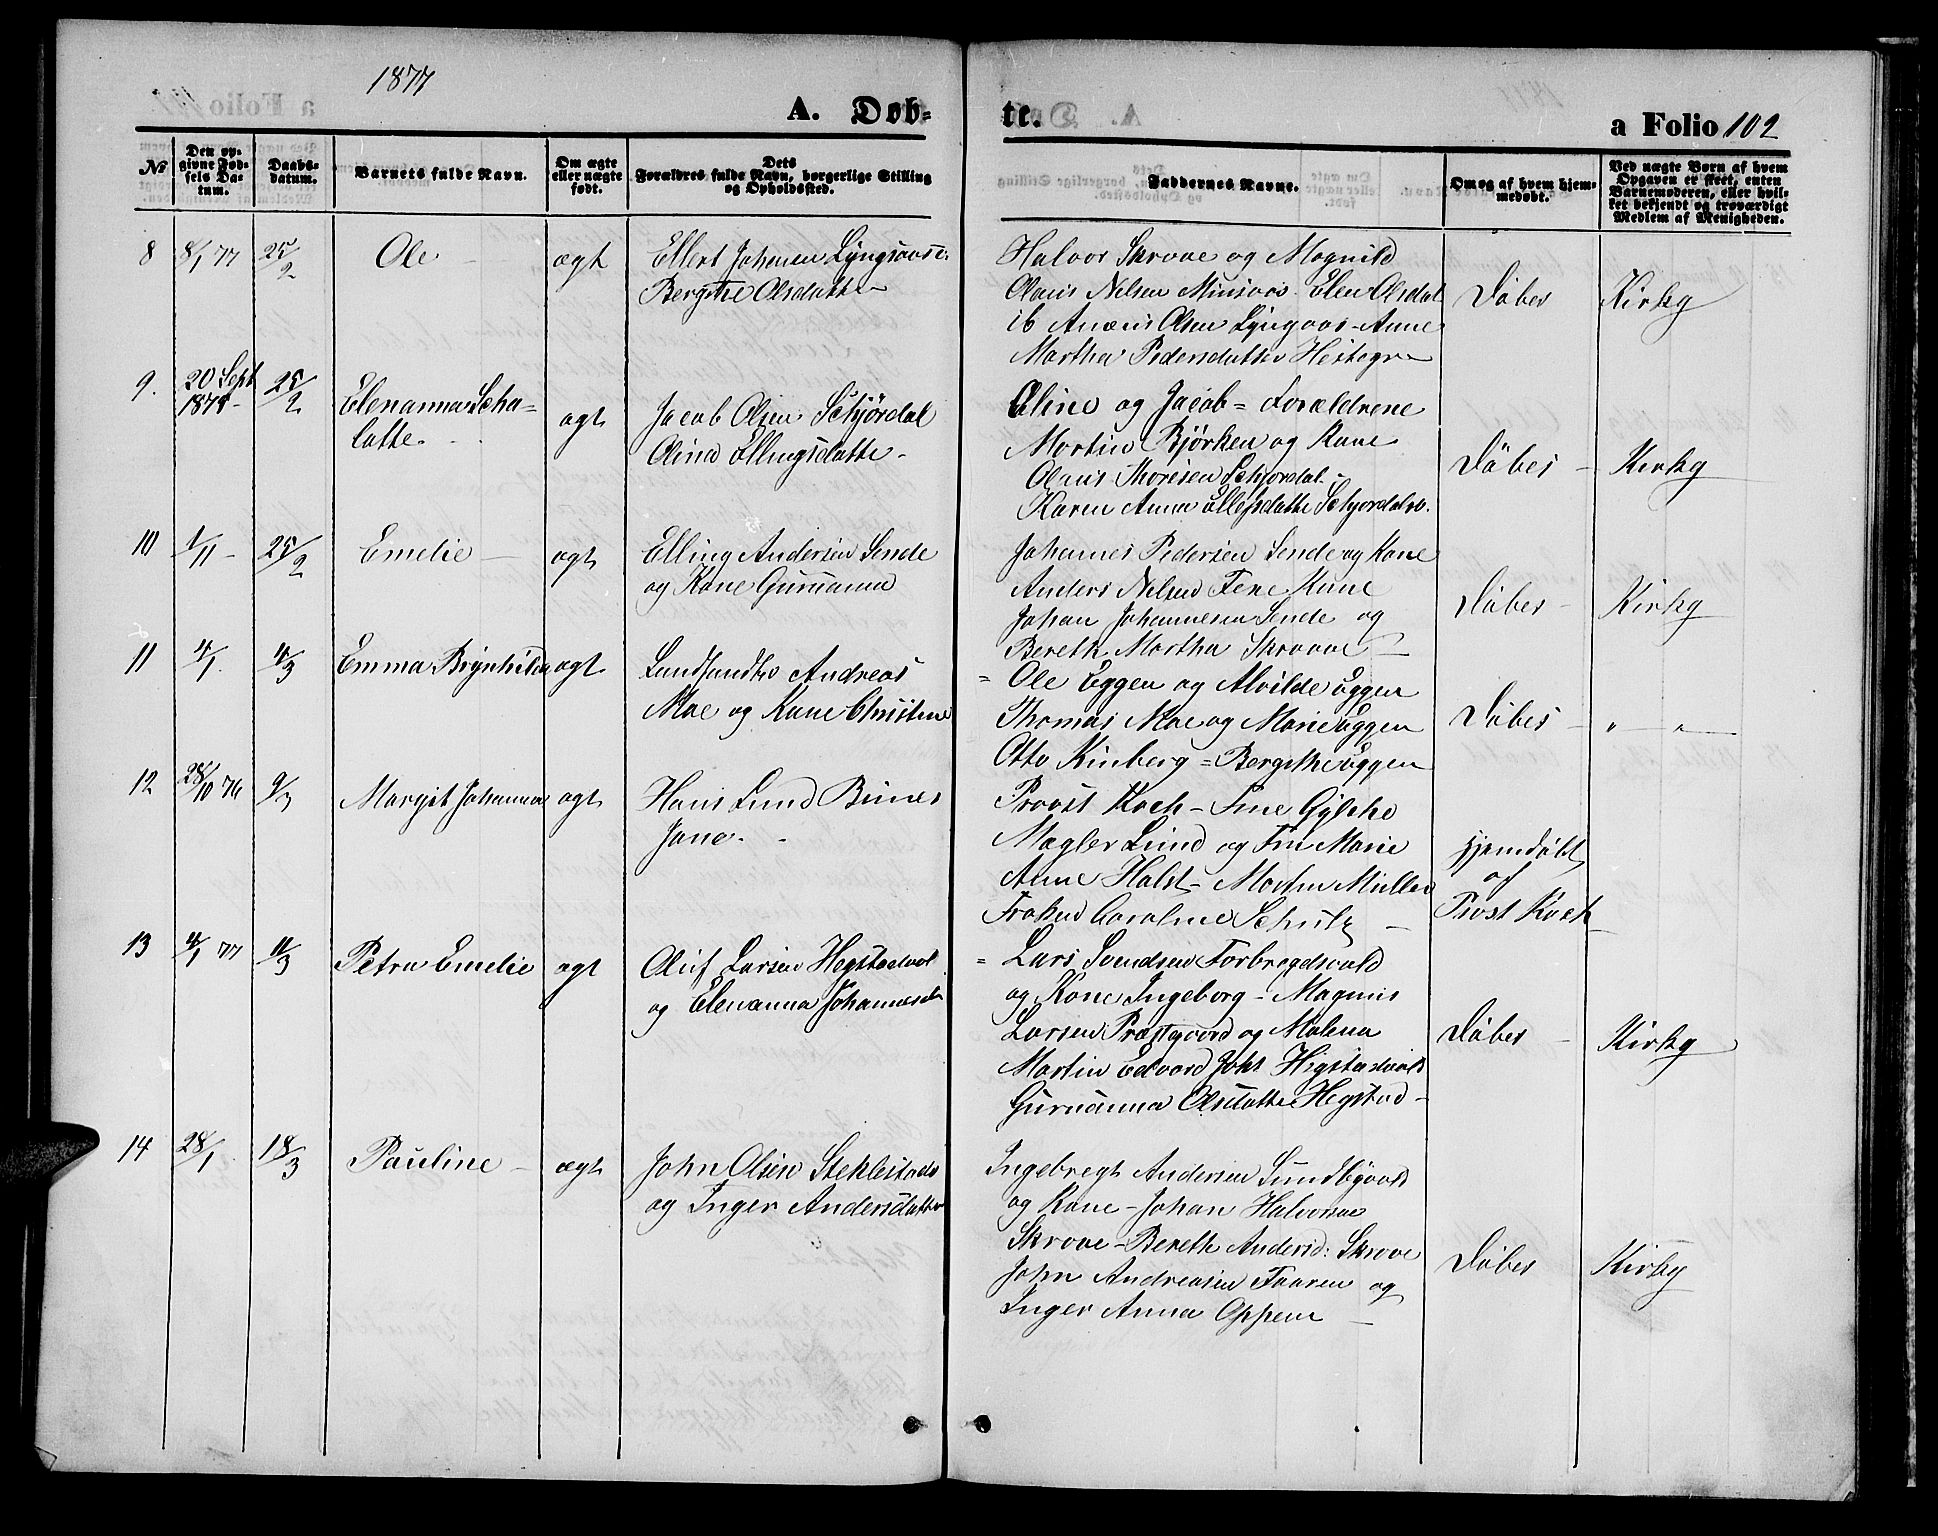 1877
A. Døb-
te.
a Folio 102
№
Den op-
givne Fød-
sels Da-
tum.
Daabs-
datum.
Barnets fulde Navn.
Om ægte
eller nægte
født.
Dets
Forældres fulde Navn, borgerlige Stilling
og Opholdssted.
Faddernes Navne.
Om og af hvem hjem-
medøbt.
Ved nægte Børn af hvem
Opgaven er skeet, enten
Barnemoderen, eller hvil-
ket bekjendt og troværdigt
Medlem af Menigheden.
8
8/1 77
25/2
Ole
ægt
Ellert Johnsen
Bergithe Olsdatter
Halvor Skrove og Magnild
Olaus Nelsen Elen Olsdat
Olsen Lyngaas - Anne
Martha Pedersdatter
Döbes
Kirky
9.
20 Sept
25/2
Elenanna Scha-
lotte.
agt
Jacob Olsen Schjørdal
Olina Ellingsdatte -
Oline og Jacob = Forældrene
Martin Bjørken og Kone
Olaus Thoresen Schjordal -
Karen Anna Schjordalsv.
Döbes -
Kirky
10
1/11 -
25/2
Emelie -
agt
Elling Andersen Sende
og Kone Guruanna
Johannes Pedersen Sende og Kone
Anders Nelsen Kone
Johan Johannesen Sende og
Bereth Martha Skrove -
Döbes -
Kirky
11
4/1.
4/3
Emma Brynhilda
agt
Landhandler Andreas
Moe og Kone Christine
= Ole Eggen og Alvilde Eggen
Thomas Moe og Marie Eggen
Otto Kinberg = Bergithe Eggen
Döbes -
" - " -
12
28/10 76
9/3
Margit Johanna
agt
Hans Lund
Jane. -
Provst Koch - Fine
Lund og Marie
Anne Holst - Morten Muller
Frøken Caroline Schultz -
Hjemdöbt
af
Prost Koch
13
4/1 77
11/3
Petra Emelie
agt
Oluf Larsen Hegstadval
og Elenanna Johannesd
= Lars Svendsen Forbregdsvald
og Kone Ingeborg - Magnus
Larsen Præstgaard og Malena
Martin Edvard Joh: Hegstadvald
Guruanna Olsdatter Hegstad -
Döbes -
Kirky
14
28/1
18/3
Pauline -
ægt
John Olsen Steklestads
og Inger Andersdatter
Ingebregt Andersen Sundbyvald
og Kone - Johan Halvorsen
Skrove - Bereth Andersd: Skrove
John Andreasen Faaren og
Inger Anna Oppem -
Döbes
Kirky